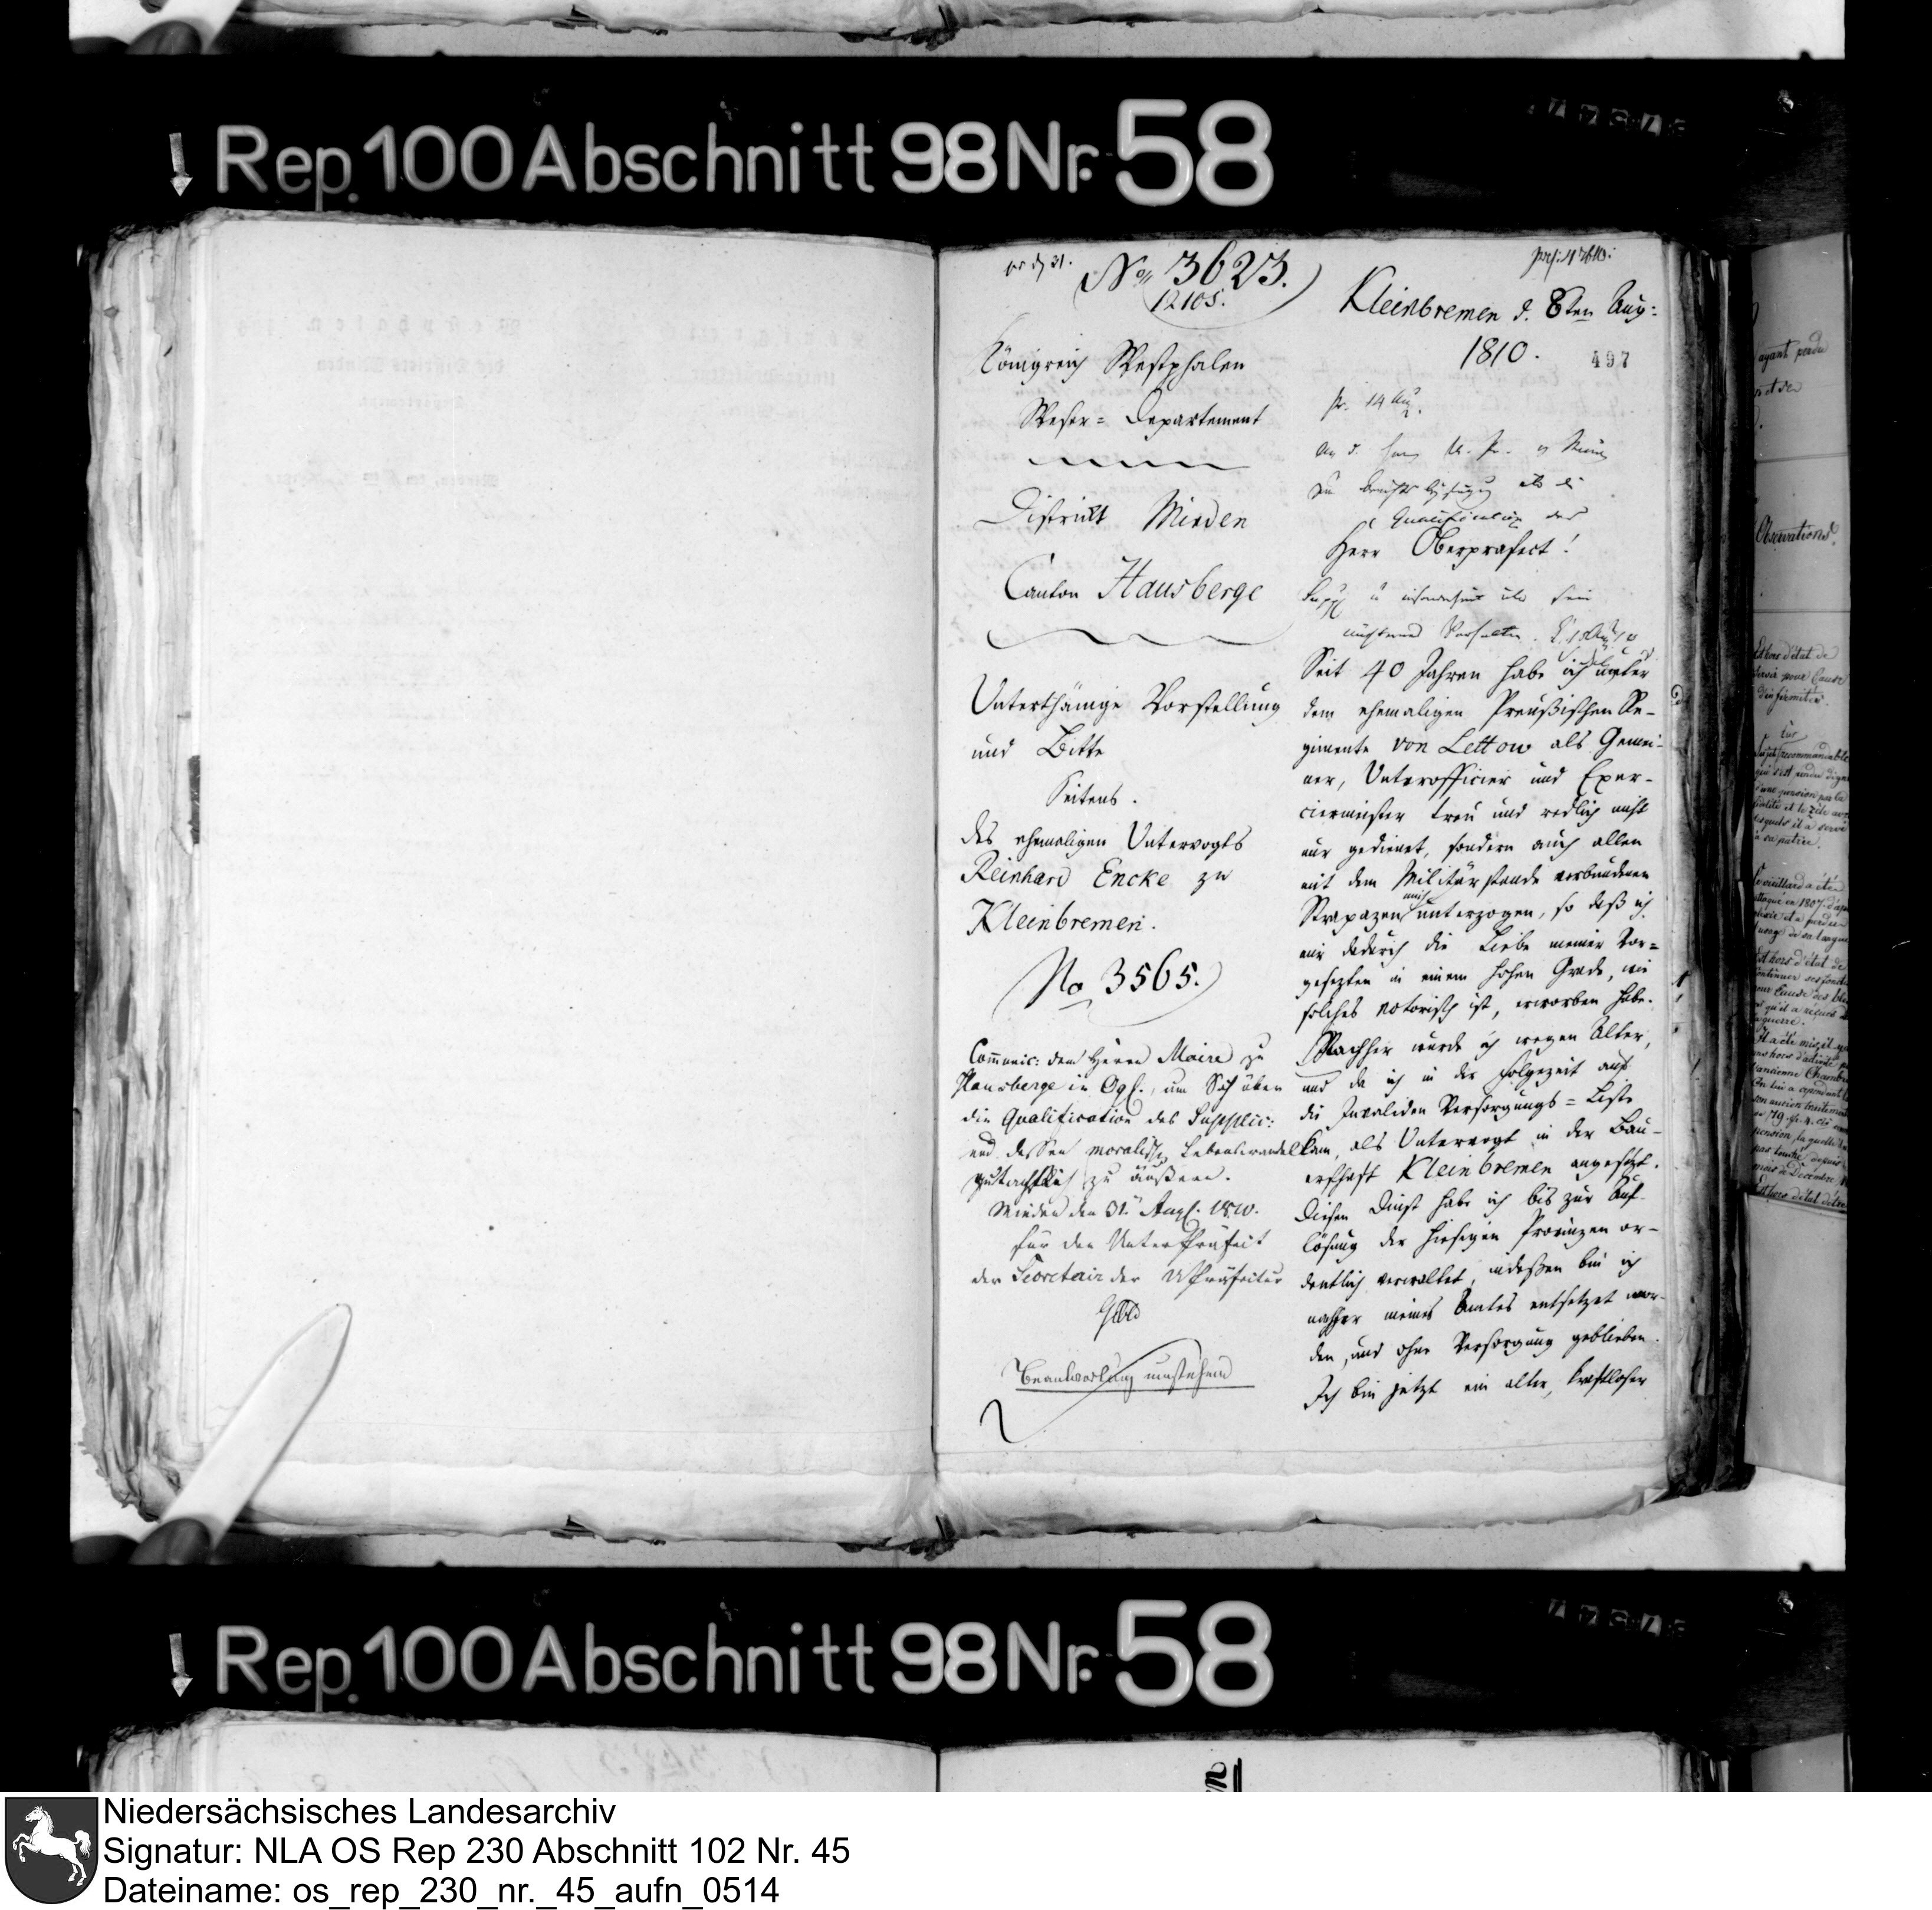 Rep. 100 Abschnitt 98 Nr. 58
No 3623.
12105.
Kleinbremen d. 8ten Aug:
1810.
497
pr. 14 Aug.
Königreich Westphalen
Weser = Departement
District Minden
Canton Hausberge
Unterthänige Vorstellung
und Bitte
Seitens.
des ehemaligen Untervogts
Reinhard Encke zu
Kleinbremen.
No 3565.
Communic: dem Herrn Maire zu
Hausberge in Orgl., um Sich über
die Qualification des Supplic:
und dessen moralisch Lebenswandel
gutachtlich zu äußern.
Minden den 31 Aug. 1810.
für den Unter Präfect
der Secretair der UPräfectur
Beantwortung umstehend
Qualification des
Herr Oberpräfect!
Seit 40 Jahren habe ich unter
dem ehemaligen Preußischen Re-
gimente von Lettow als Gemei-
ner, Unterofficier und Exer-
ciermeister treu und redlich nicht
nur gedienet, sondern auch allen
mit dem Militärstande verbundenen
Strapazen mich unterzogen, so daß ich
mir dadurch die Liebe meiner Vor=
gesezten in einem hohen Grade, wie
solches notorisch ist, erworben habe.
Nachher wurde ich wegen Alter,
und da ich in der Folgezeit auf
die Invaliden Versorgungs = Liste
kam, als Untervogt in der Bau-
erschaft Kleinbremen angesezt.
Diesen Dienst habe ich bis zur Auf-
lösung der hiesigen Provinzen or-
dentlich verwaltet, indeßen bin ich
nachher meines Amtes entsetzet wor-
den, und ohne Versorgung geblieben.
Ich bin jetzt ein alter, kraftloser
Observations.
Rep. 100 Abschnitt 98 Nr. 58
Niedersächsisches Landesarchiv
Signatur: NLA OS Rep 230 Abschnitt 102 Nr. 45
Dateiname: os_rep_230_nr._45_aufn_0514